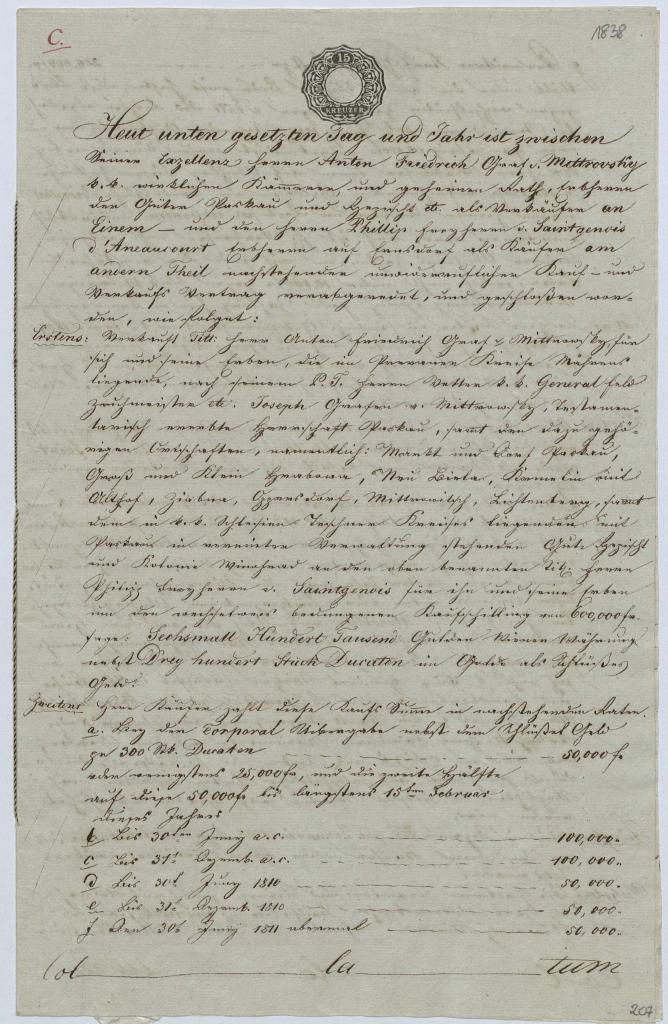 C.
1838
15
KREUZER
Heut unten gesetzten Tag und Jahr ist zwischen
Seiner Exzellenz Herrn Anton Friedrich Graf v. Mittrovsky
k. k. wirklichen Kämmerer und geheimen Rath, Erbherrn
der Güter Paskau und etc. als Verkäufer an
Einem – und den Herrn Phillip Freyherrn v. Saintgenois
d'Aneaucourt Erbherrn auf Ernsdorf als Käufer am
andern Theil nachstehender unwiderruflicher Kauf – und
Verkaufs Vertrag verabgeredet, und geschloßen wor-
den, wie folget:
Erstens: Verkauft Titt: Herr Anton Friedrich Graf v. Mittrowsky, für
sich und seine Erben, die im Prerauer Kreise Mährens
liegende, nach seinem P. T. Herrn Vetter k. k. General Feld
Zeugmeister etc. Joseph Grafen v. Mittrowsky, Testamen-
tarisch ererbte Herrschaft Paskau, samt den dazu gehö-
rigen Ortschaften, namentlich: Markt und Dorf Paskau,
Groß und Klein Hrabowa, Neu Biela, Krmelin mit
Althof, Žabna, Mittrowitsch, Lichtenberg, samt
dem in k. k. Schlesien Teschner Kreises liegenden mit
Paskau in vereinter Verwaltung stehenden Gute
und Kolonie Winohrad an den oben benannten Titl. Herrn
Philipp Freyherrn v. Saintgenois für ihn und seine Erben
um den wechselweis bedungenen Kaufschilling von 600,000 fr.
sage: Sechsmall Hundert Tausend Gulden Wiener Währung
nebst Drey hundert Stück Ducaten im Golde als Schlüßel
Geld.
Zweitens Herr Käufer zahlt diese Kaufs Summe in nachstehenden Raten.
a. Bey der Corporal Uibergabe nebst dem Schlüßel Geld
pr 300 Stk. Ducaten 50,000 fr
oder wenigstens 25,000 fr, und die zweite Hälfte
auf diese 50,000 fr bis längstens 15ten Februar
dieses Jahres
b Bis 30ten Juny a. c. 100,000.
c Bis 31t Dezemb. a. c. 100,000.
d Bis 30t Juny 1810 50,000.
e Bis 31t Dezemb. 1810 50,000.
f Den 30t Juny 1811 abermal 50,000.
Col la tum
207